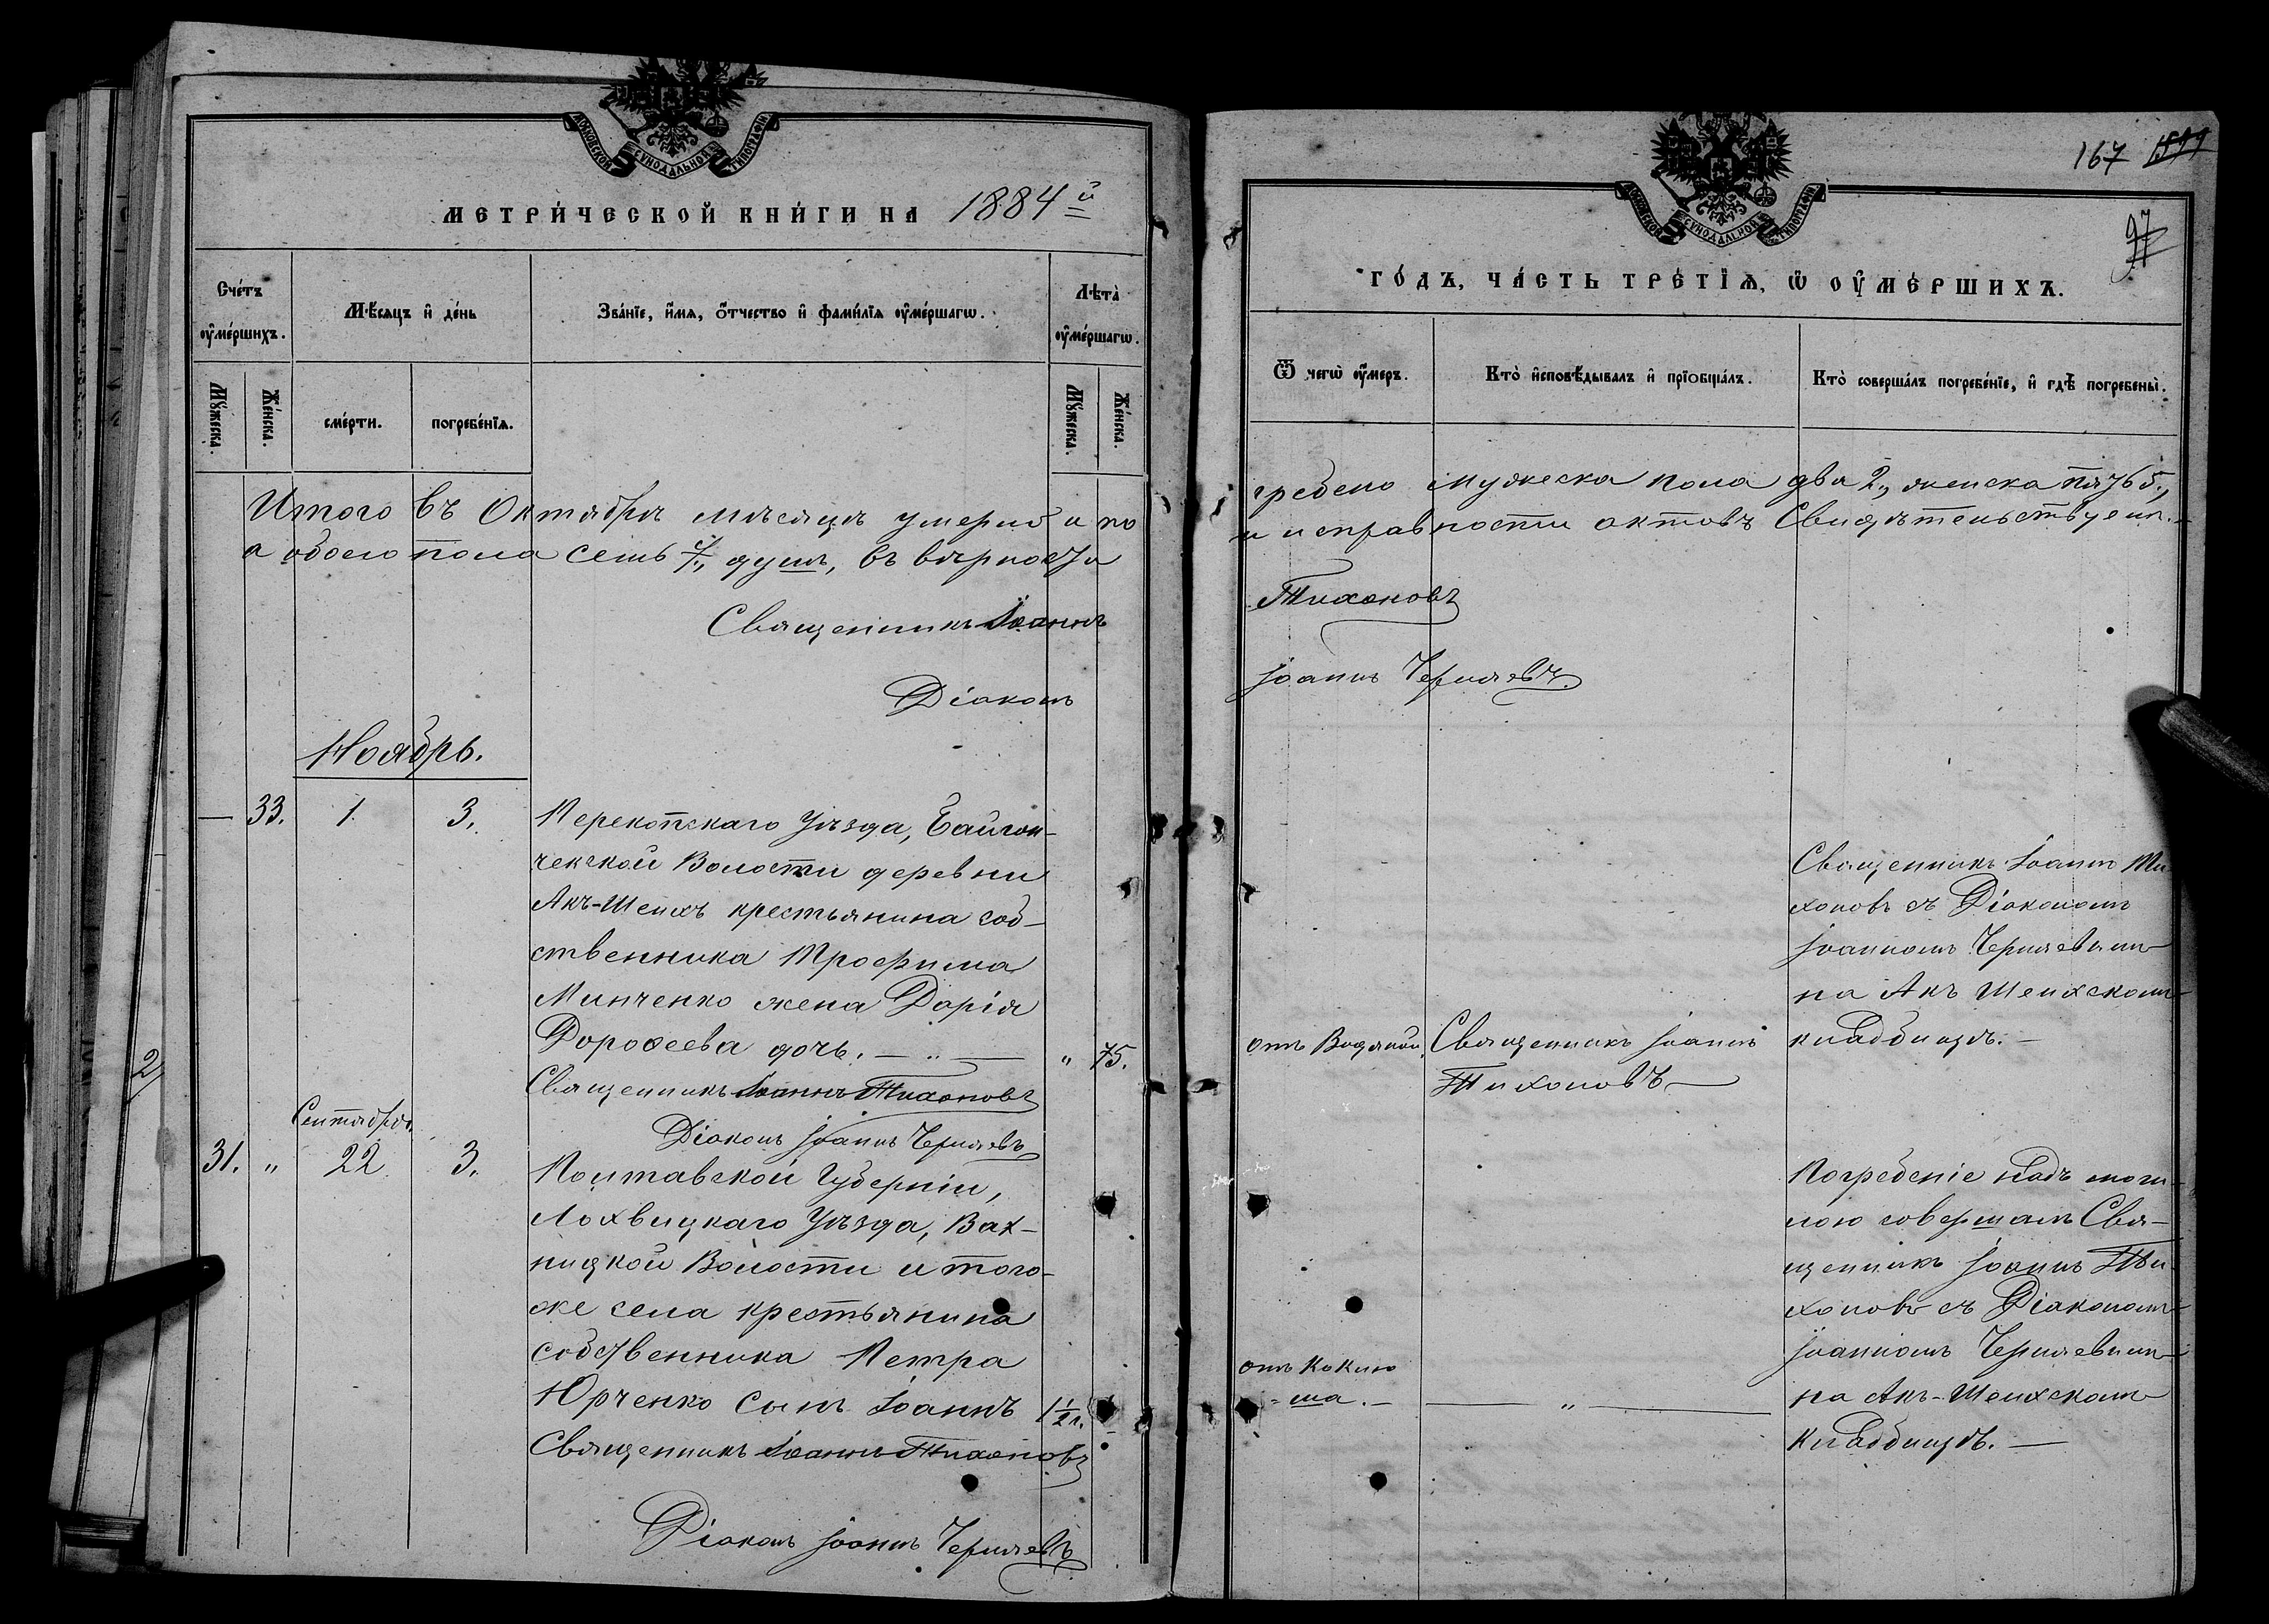 МОСКОВСКОЙ СУНОДАЛЬНОЙ ТИПОГРАФІИ
МЕТРИ́ЧЕСКОЙ КНИ́ГИ НА 1884й
Сче́тъ ᲂу҆ме́ршихъ.
Мѣ́сяцъ и҆ де́нь
Зва́нїе, и҆́мя, ѻ҆́тчество и҆ фами́лїя ᲂу҆ме́ршагѡ.
Лѣта̀ ᲂу҆ме́ршагѡ.
Мꙋ́жеска.
Же́нска.
сме́рти.
погребе́нїѧ.
Мꙋ́жеска.
Же́нска.
Итого въ Октябрѣ мѣсяцѣ умерло и по
а обоего пола семь 7., душъ, въ вѣрности
Священникъ Іоаннъ
Діаконъ
Ноябрь.
— 33. 1. 3.
Перекопскаго Уѣзда, Байгон-
чекской Волости деревни
Акъ-Шеихъ крестьянина соб-
ственника Трофима
Минченко жена Дарія
Дорофеева дочь. — „ —
„ 75.
Священникъ Іоаннъ Тихоновъ
Діаконъ Іоаннъ Черняевъ
Сентября
31. „ 22 3.
Полтавской Губерніи,
Лохвицкаго Уѣзда, Вах-
ницкой Волости и того-
же села крестьянина
собственника Петра
Юрченко сынъ Іоаннъ
1½ г.
Священникъ Іоаннъ Тихоновъ
Діаконъ Іоаннъ Черняевъ
2
МОСКОВСКОЙ СУНОДАЛЬНОЙ ТИПОГРАФІИ
167
97
ГО́ДЪ, ЧА́СТЬ ТРЕ́ТЇѦ, Ѡ҆ ОУ҆МЕ́РШИХЪ.
Ѿ чегѡ̀ ᲂу҆́меръ.
Кто̀ и҆сповѣ́дывалъ и҆ прїѡбща́лъ.
Кто̀ соверша́лъ погребе́нїе, и҆ гдѣ̀ погребены̀.
гребено мужеска пола два 2., женска пять 5.,
и исправности актовъ Свидѣтельствуемъ.
Тихоновъ
Іоаннъ Черняевъ.
Священникъ Іоаннъ Ти
хоновъ съ Діакономъ
Іоанномъ Черняевымъ
на Акъ Шеихскомъ
кладбищѣ. —
отъ Водяной.
Священникъ Іоаннъ
Тихоновъ —
Погребеніе надъ моги-
лою совершалъ Свя-
щенникъ Іоаннъ Ти-
хоновъ съ Діакономъ
Іоанномъ Черняевымъ
на Акъ-Шеихскомъ
кладбищѣ. —
отъ Коклю
-ша. —
— „ —